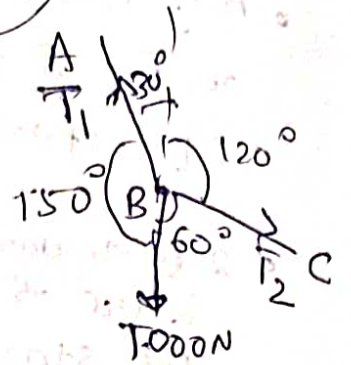 A
30°
T1
120°
150°
B
60°
T2
C
1000N